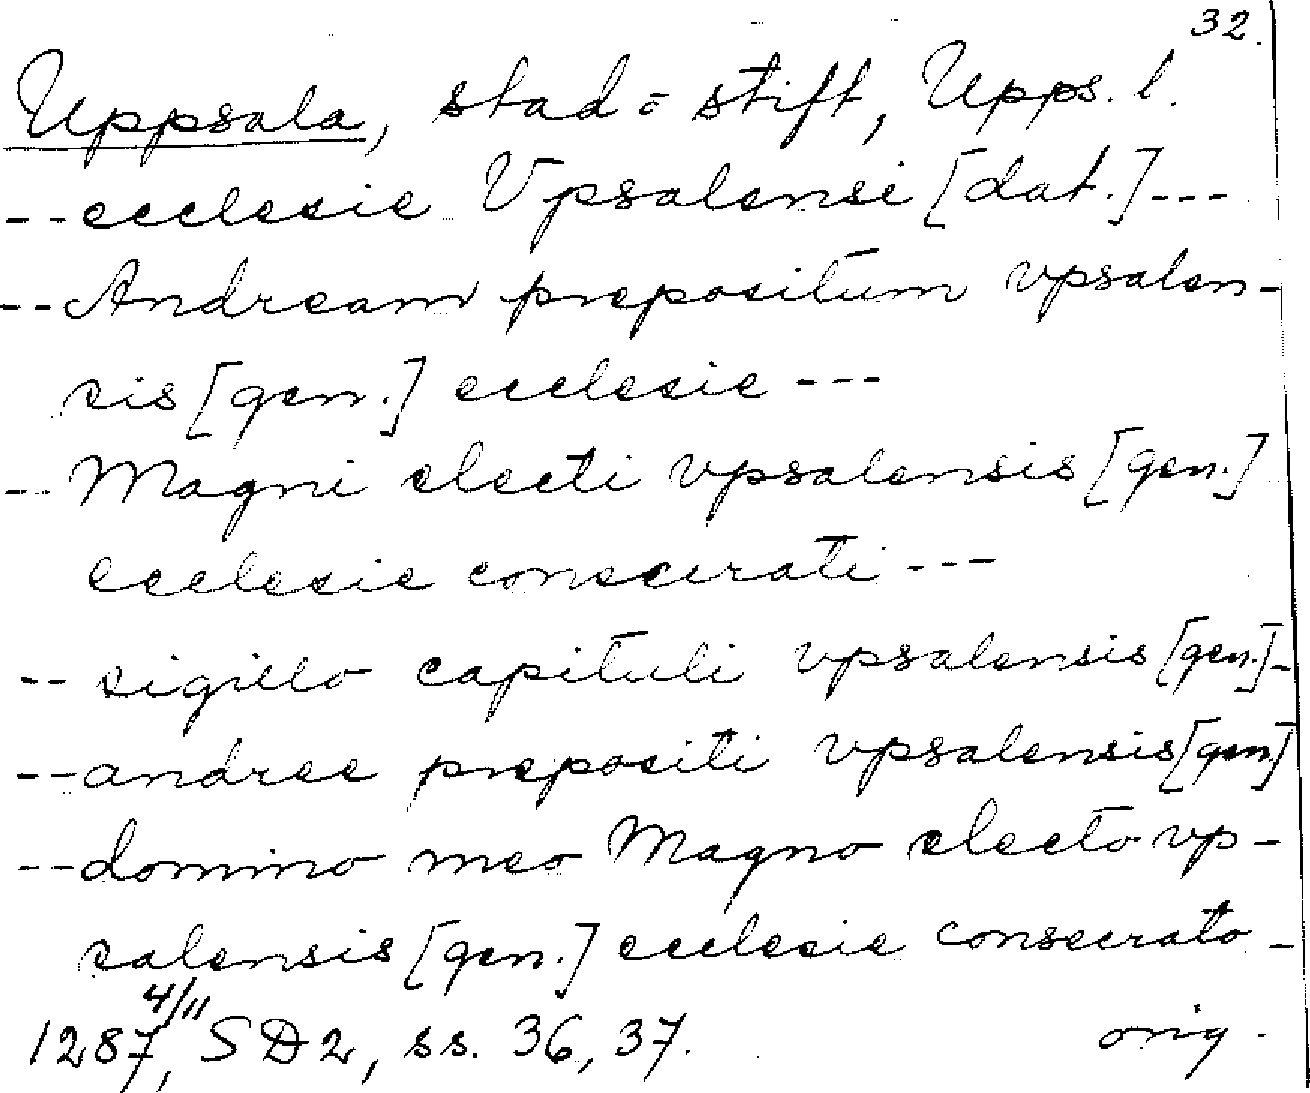 32.
Uppsala, stad o stift, Upps. l.
-- ecclesie Vpsalensi [dat.] ---
-- Andream prepositum vpsalen-
sis [gen.] ecclesie ---
-- Magni electi vpsalensis [gen.]
ecclesie consecrati ---
-- sigillo capituli vpsalensis [gen.] -
-- andree prepositi vpsalensis [gen.]
-- domino meo Magno electo vp-
salensis [gen.] ecclesie consecrato -
1287 4/11, SD 2, ss. 36, 37. orig.